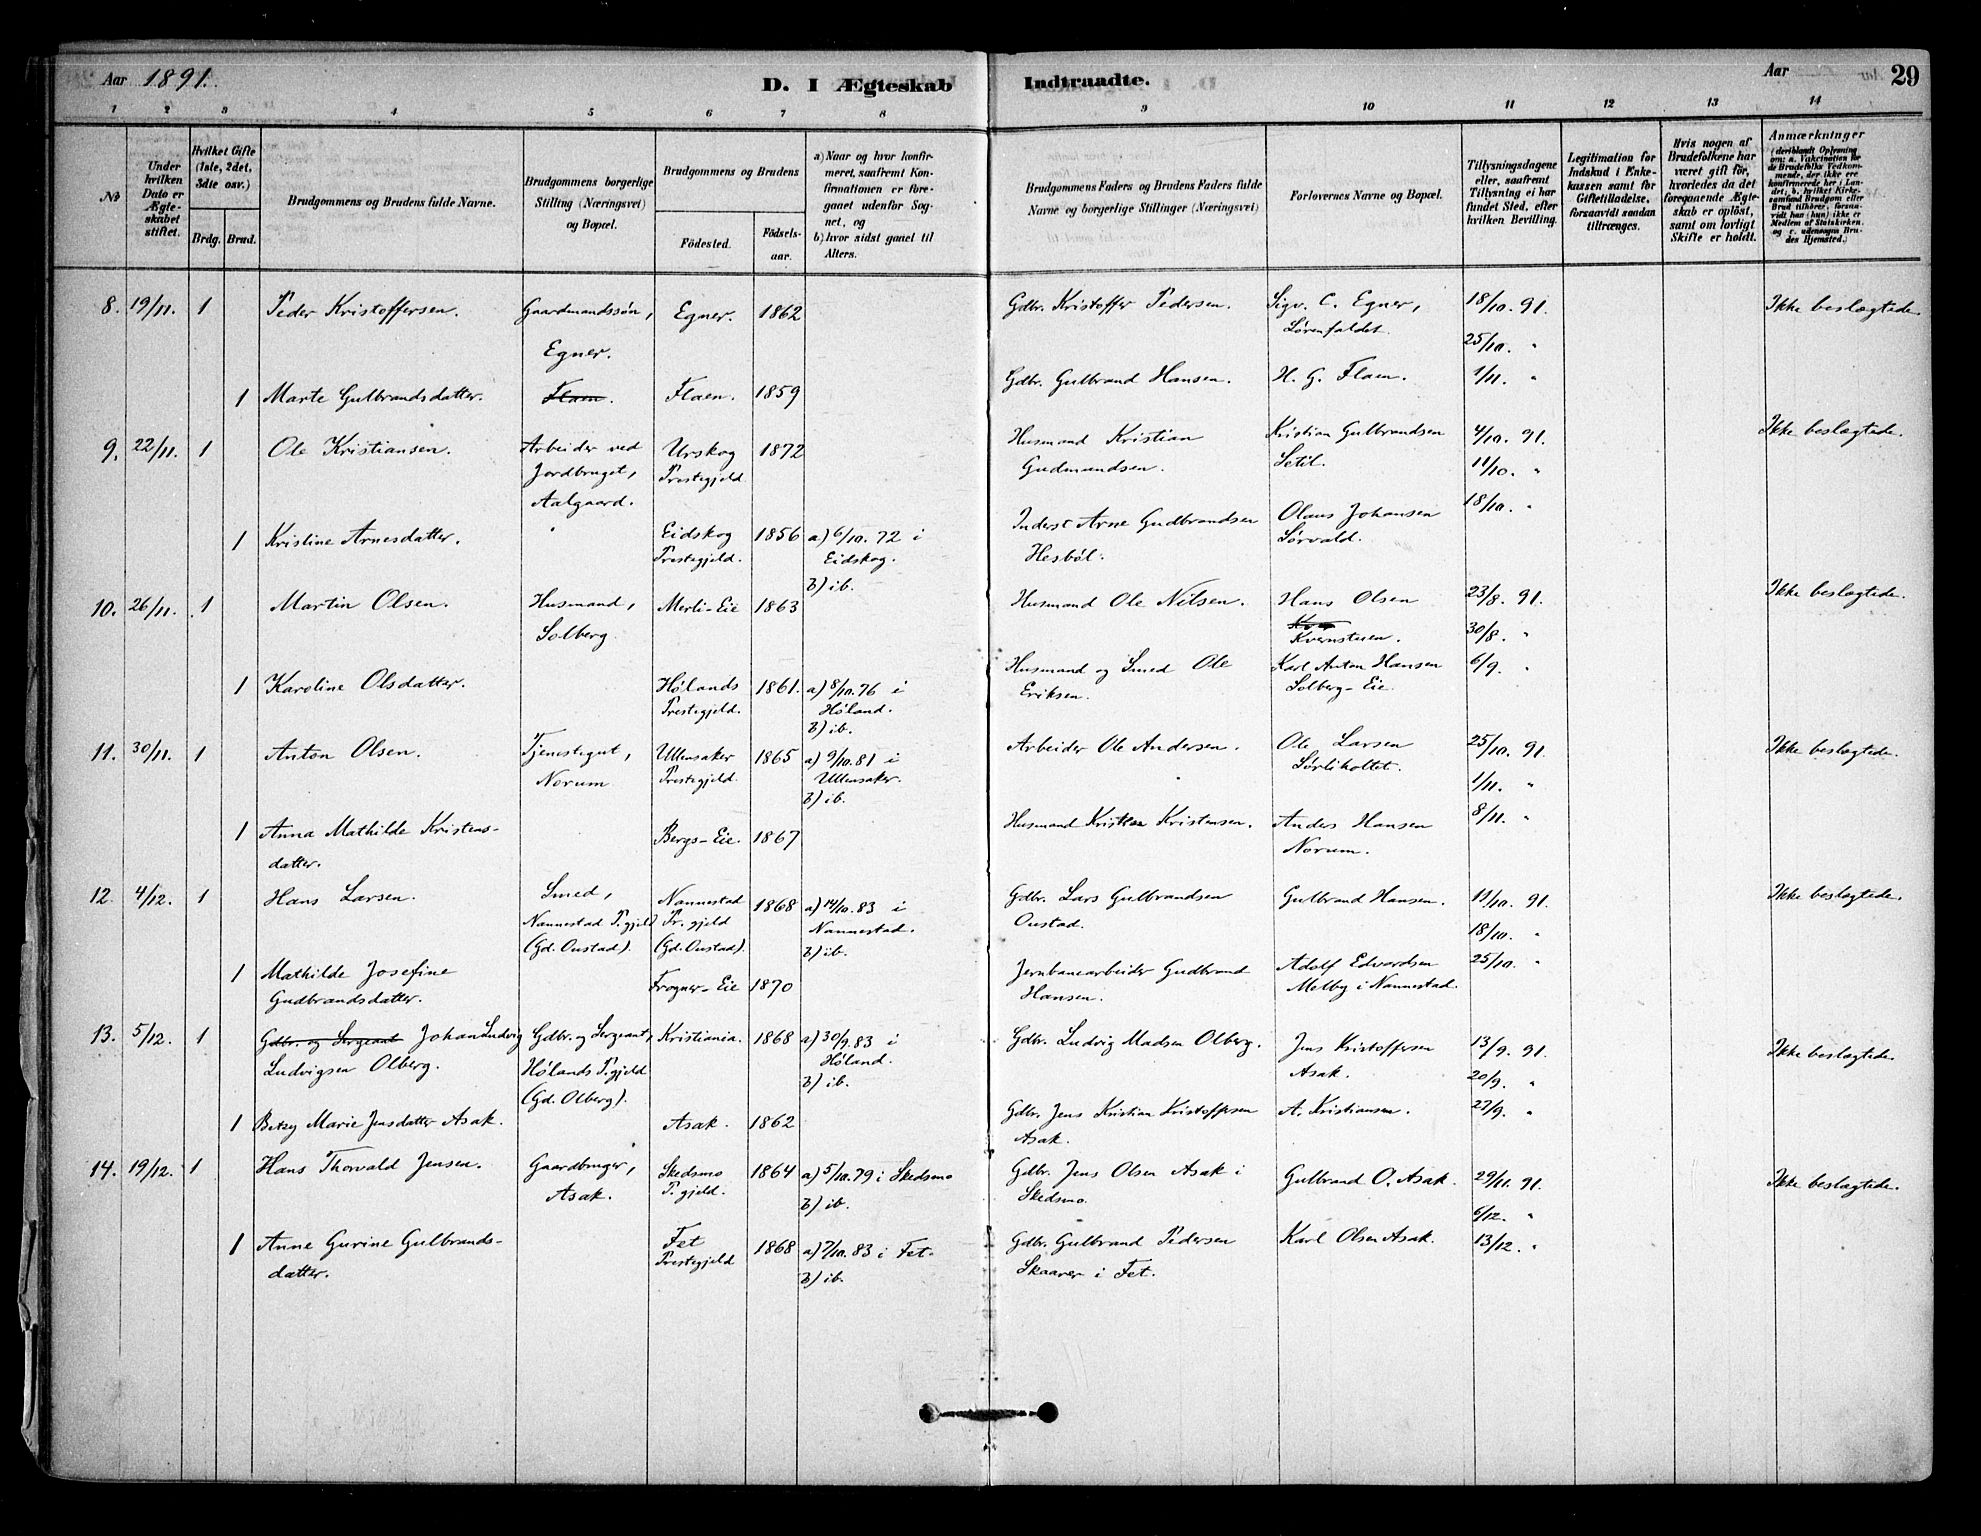 Aar 1891.
D. I Ægteskab Indtraadte.
Aar
29
1 2 3 4 5 6 7 8 9 10 11 12 13 14
No
Under hvilken Dato er Ægteskabet stiftet.
Hvilket Gifte (1ste, 2det, 3die osv.)
Brdg. Brud.
Brudgommens og Brudens fulde Navne.
Brudgommens borgerlige Stilling (Næringsvei) og Bopæl.
Brudgommens og Brudens
Födested.
Födselsaar.
a) Naar og hvor konfirmeret, saafremt Konfirmationen er foregaaet udenfor Sognet, og
b) hvor sidst ganet til Alters.
Brudgommens Faders og Brudens Faders fulde Navne og borgerlige Stillinger (Næringsvei)
Forlovernes Navne og Bopæl.
Tillysningsdagene eller, saafremt Tillysning ei har fundet Sted, efter hvilken Bevilling.
Legitimation for Indskud i Enkekassen samt for Giftetilladelse, forsaavidt saadan tiltrænges.
Hvis nogen af Brudefolkene har været gift för, hvorledes da det foregaaende Ægteskab er oplöst, samt om lovligt Skifte er holdt.
Anmærkninger
(deriblandt Oplysning om: a. Vakcination for de Brudefolks Vedkommende, der ikke ere konfirmerede her i Landet, b. hvilket Kirkesamfund Brudgom eller Brud tilhöre, forsaavidt han (hun) ikke er Medlem af Statskirken, og c. udensogns Brudes Hjemsted.)
8. 19/11. 1 Peder Kristoffersen. Gaardmandssön, Egner. 1862 Gdbr. Kristoffer Pedersen. Sigv. C. Egner, 18/10. 91. Ikke beslægtede.
Egner. Lörenfaldet. 25/10. "
1 Marte Gulbrandsdatter. Flaen. Flaen. 1859 Gdbr. Gulbrand Hansen. H. G. Flaen. 1/11. "
9. 22/11. 1 Ole Kristiansen. Arbeider ved Urskog 1872 Husmand Kristian Kristian Gulbrandsen 4/10. 91. Ikke beslægtede.
Jordbruget, Prestegjeld Gudmandsen. Setil. 11/10. "
Aalgaard. 18/10. "
1 Kristine Arnesdatter. " Eidskog 1856 a) 6/10. 72 i Inderst Arne Gudbrandsen Olaus Johansen
Prestegjeld. Eidskog. Hesböl. Sörvald.
b) ib.
10. 26/11. 1 Martin Olsen. Husmand, Merli-Eie 1863 Husmand Ole Nilsen. Hans Olsen 23/8. 91. Ikke beslægtede.
Solberg. Kvernstuen. 30/8. "
1 Karoline Olsdatter. Hølands 1861. a) 8/10. 76 i Husmand og Smed Ole Karl Anton Hansen 6/9. "
Prestegjeld. Høland. Eriksen. Solberg-Eie.
b) ib.
11. 30/11. 1 Anton Olsen. Tjenestegut, Ullensaker 1865 a) 9/10. 81 i Arbeider Ole Andersen. Ole Larsen 25/10. 91. Ikke beslægtede.
Norum Prestegjeld. Ullensaker. Sörliholtet. 1/11. "
b) ib.
1 Anna Mathilde Kristens- Bergs-Eie. 1867 Husmand Kristen Kristensen. Anders Hansen 8/11. "
datter. Norum.
12. 4/12. 1 Hans Larsen. Smed, Nannestad 1868 a) 14/10. 83 i Gdbr. Lars Gulbrandsen Gulbrand Hansen. 11/10. 91. Ikke beslægtede.
Nannestad P.gjeld Pr. gjeld Nannestad. Oustad. 18/10. "
(Gd. Oustad). (Gd. Oustad). b) ib.
1 Mathilde Josefine Frogner-Eie 1870 Jernbanearbeider Gudbrand Adolf Edvardsen 25/10. "
Gudbrandsdatter. Hansen. Melby i Nannestad.
13. 5/12. 1 Gdbr. og Sergeant Johan Ludvig Gdbr. og Sergeant, Kristiania. 1868 a) 30/9. 83 i Gdbr. Ludvig Madsen Olberg. Jens Kristoffersen 13/9. 91. Ikke beslægtede.
Ludvigsen Olberg. Hølands P.gjeld Høland. Asak. 20/9. "
(Gd. Olberg). b) ib.
1 Betzy Marie Jensdatter Asak. Asak. 1862 Gdbr. Jens Kristian Kristoffersen A. Kristiansen. 27/9. "
Asak.
14. 19/12. 1 Hans Thorvald Jensen. Gaardbruger, Skedsmo 1864 a) 5/10. 79 i Skedsmo Gdbr. Jens Olsen Asak i Gulbrand O. Asak. 29/11. 91. Ikke beslægtede.
Asak. P. gjeld. b) ib. Skedsmo. 6/12. "
1 Anne Gurine Gulbrands- Fet 1868 a) 7/10. 83 i Fet. Gdbr. Gulbrand Pedersen Karl Olsen Asak. 13/12. "
datter. Prestegjeld b) ib. Skaarer i Fet.